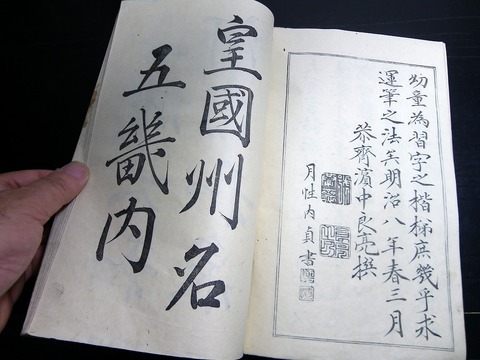 幼童為習字之楷梯庶幾乎求
運筆之法矣明治八年春三月
恭齊濱中良亮撰
月性内貞書
皇國州名
五畿内